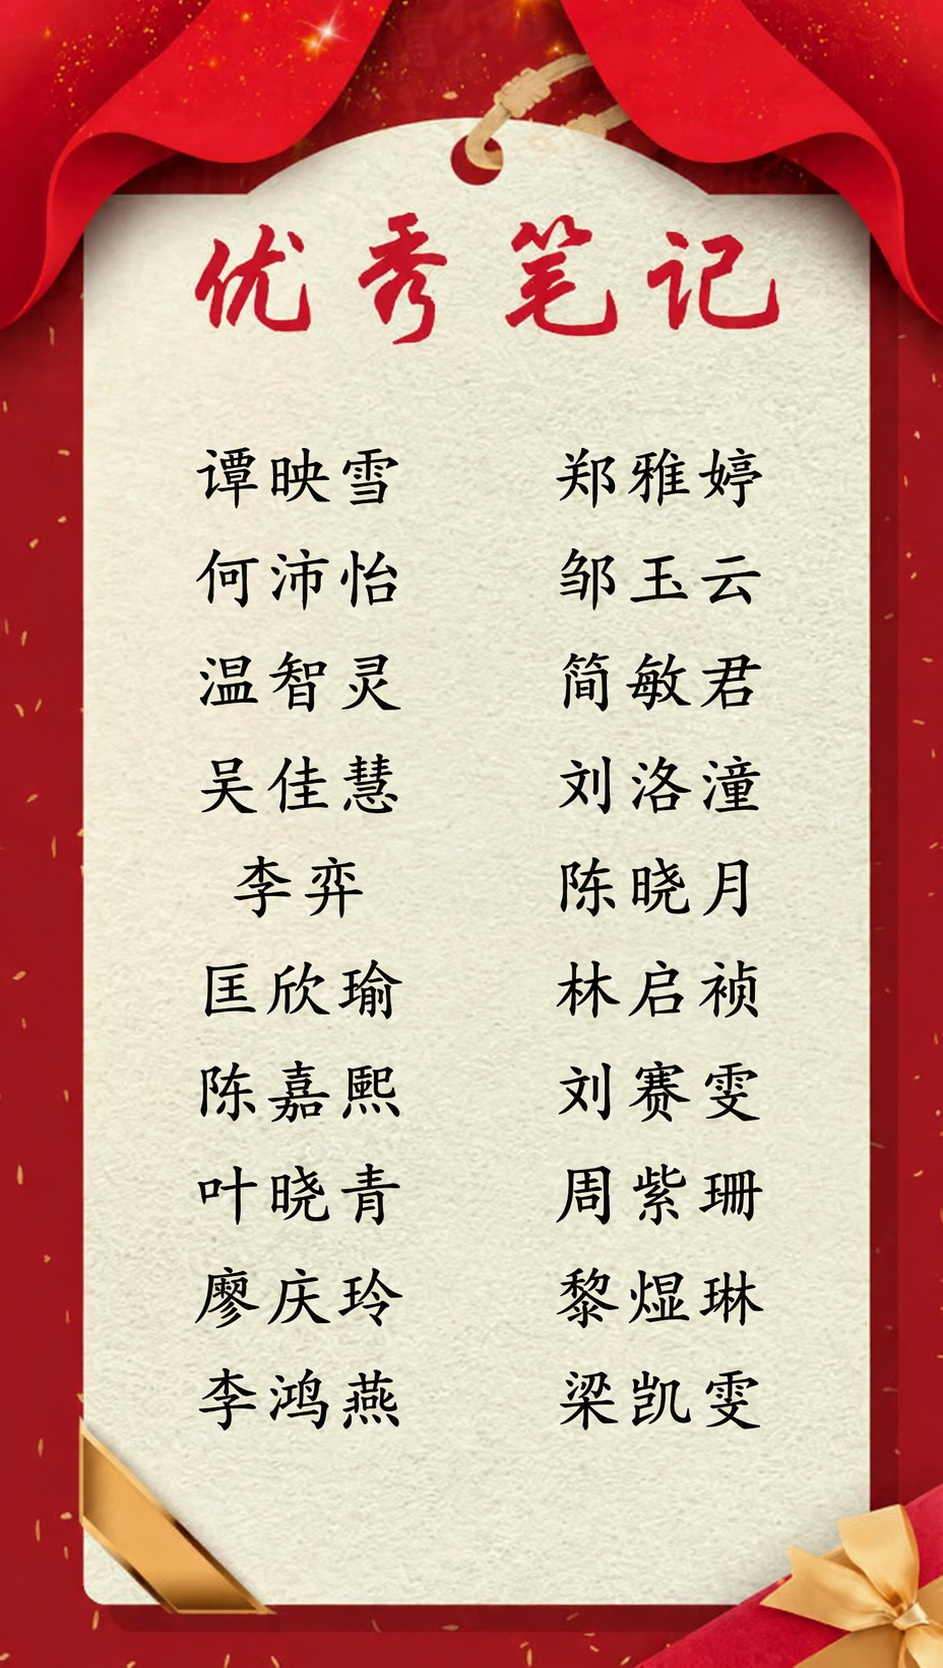 优秀笔记
谭映雪 郑雅婷
何沛怡 邹玉云
温智灵 简敏君
吴佳慧 刘洛潼
李弈 陈晓月
匡欣瑜 林启祯
陈嘉熙 刘赛雯
叶晓青 周紫珊
廖庆玲 黎煜琳
李鸿燕 梁凯雯